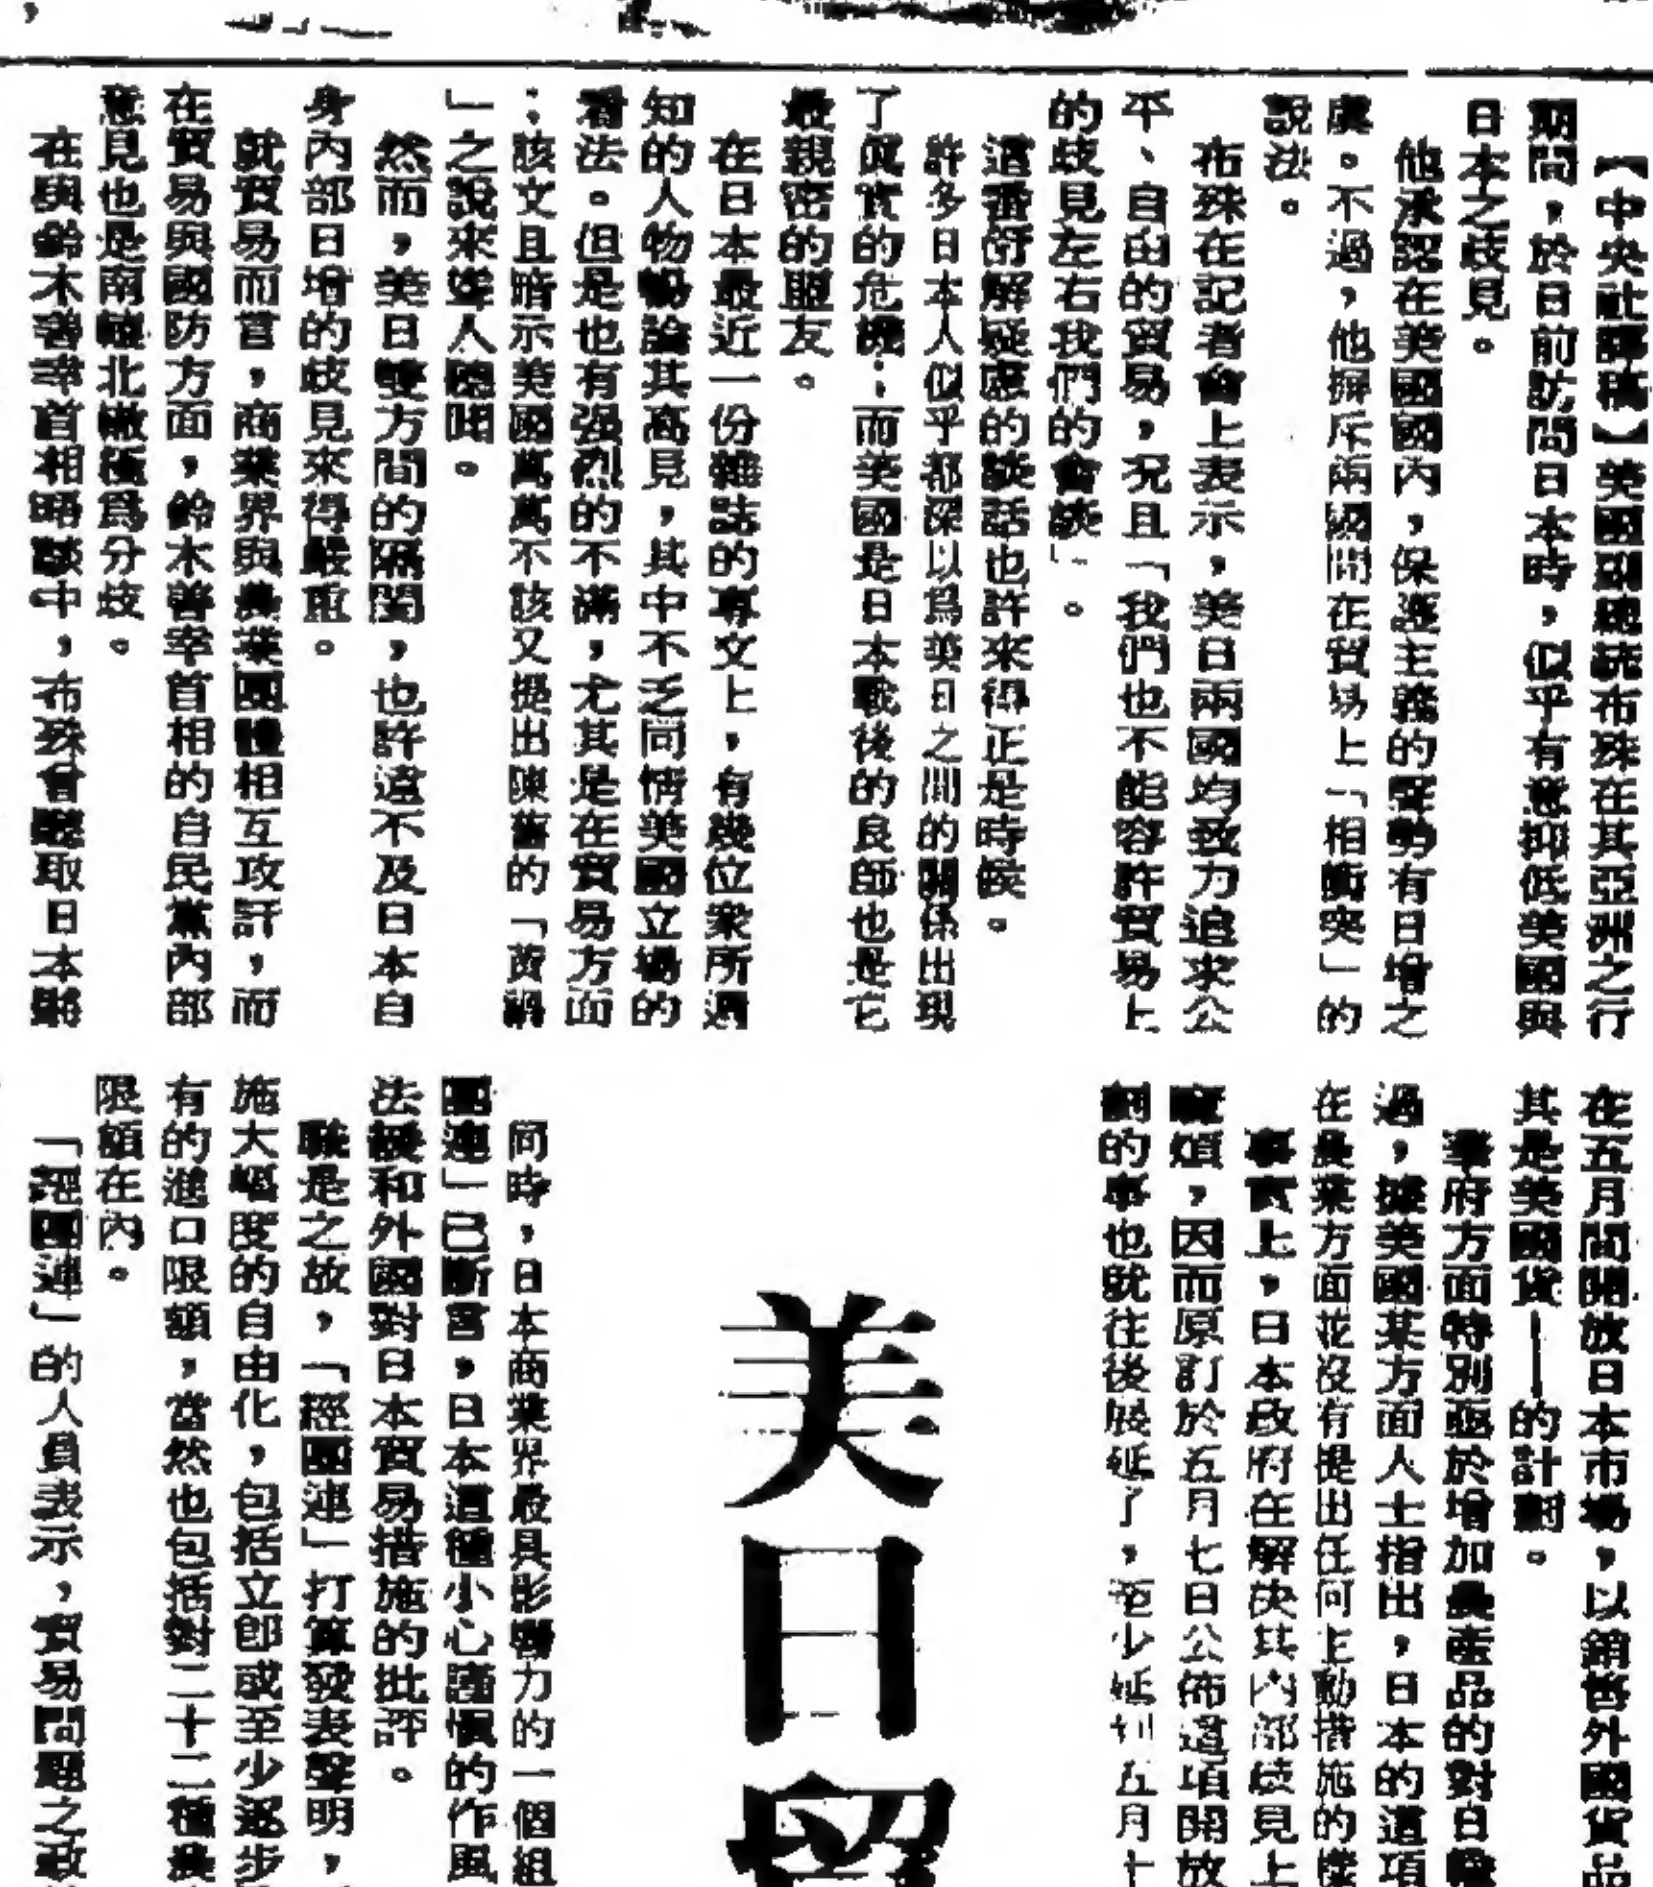 【中央社譯稿】美國副總統布殊在其亞洲之行
期間，於日前訪問日本時，似乎有意抑低美國與
日本之歧見。
他承認在美國國內，保護主義的聲勢有日增之
虞。不過，他摒斥兩國間在貿易上「相衝突」的
說法。
布殊在記者會上表示，美日兩國均致力追求公
平、自由的貿易，況且「我們也不能容許貿易上
的歧見左右我們的會談」。
這番紓解疑慮的談話也許來得正是時候。
許多日本人似乎都深以爲美日之間的關係出現
了眞實的危機；而美國是日本戰後的良師也是它
最親密的盟友。
在日本最近一份雜誌的專文上，有幾位衆所週
知的人物暢論其高見，其中不乏同情美國立場的
看法。但是也有强烈的不滿，尤其是在貿易方面
；該文且暗示美國萬萬不該又提出陳舊的「黃禍
」之說來聳人聽聞。
然而，美日雙方間的隔閡，也許遠不及日本自
身內部日增的歧見來得嚴重。
就貿易而言，商業界與農業團體相互攻訐，而
在貿易與國防方面，鈴木善幸首相的自民黨內部
意見也是南轅北轍極爲分歧。
在與鈴木善幸首相晤談中，布殊曾聽取日本將
在五月間開放日本市場，以銷售外國貨品
其是美國貨——的計劃。
華府方面特別亟於增加農產品的對日
過，據美國某方面人士指出，日本的這項
在農業方面並沒有提出任何主動措施的
事實上，日本政府在解決其內部歧見上
麻煩，因而原訂於五月七日公佈這項開放
劃的事也就往後展延了，至少延到五月十
美日貿
同時，日本商業界最具影響力的一個組
團連」已斷言，日本這種小心謹愼的作風
法緩和外國對日本貿易措施的批評。
職是之故，「經團連」打算發表聲明，
施大幅度的自由化，包括立卽或至少逐步
有的進口限額，當然也包括對二十二種農
限額在內。
「經團連」的人員表示，貿易問題之政